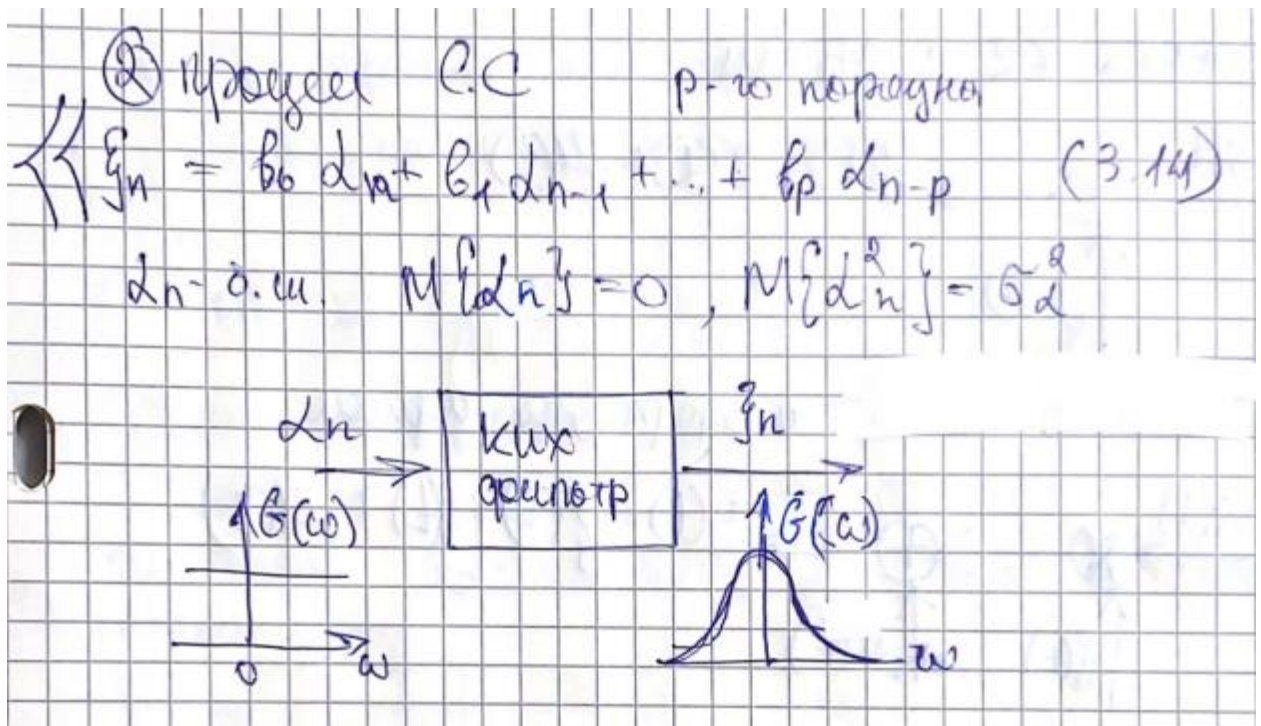 ② процесс С.С p-го порядка
ξn = b0 αn + b1 αn-1 + ... + bp αn-p (3.14)
αn - б.ш. M{αn} = 0, M{αn²} = σα²
αn
ξn
КИХ
фильтр
G(ω)
G(ω)
0
ω
ω